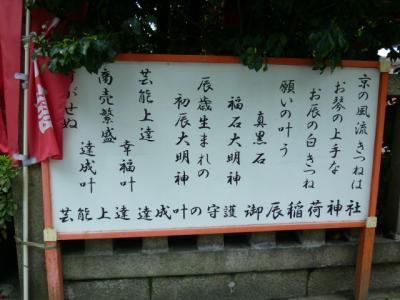 京の風流きつねは
お琴の上手な
お辰の白きつね
願いの叶う
真黒石
福石大明神
辰歳生まれの
初辰大明神
芸能上達
幸福叶
商売繁盛
達成叶
がせぬ
芸能上達達成叶の守護御辰稲荷神社